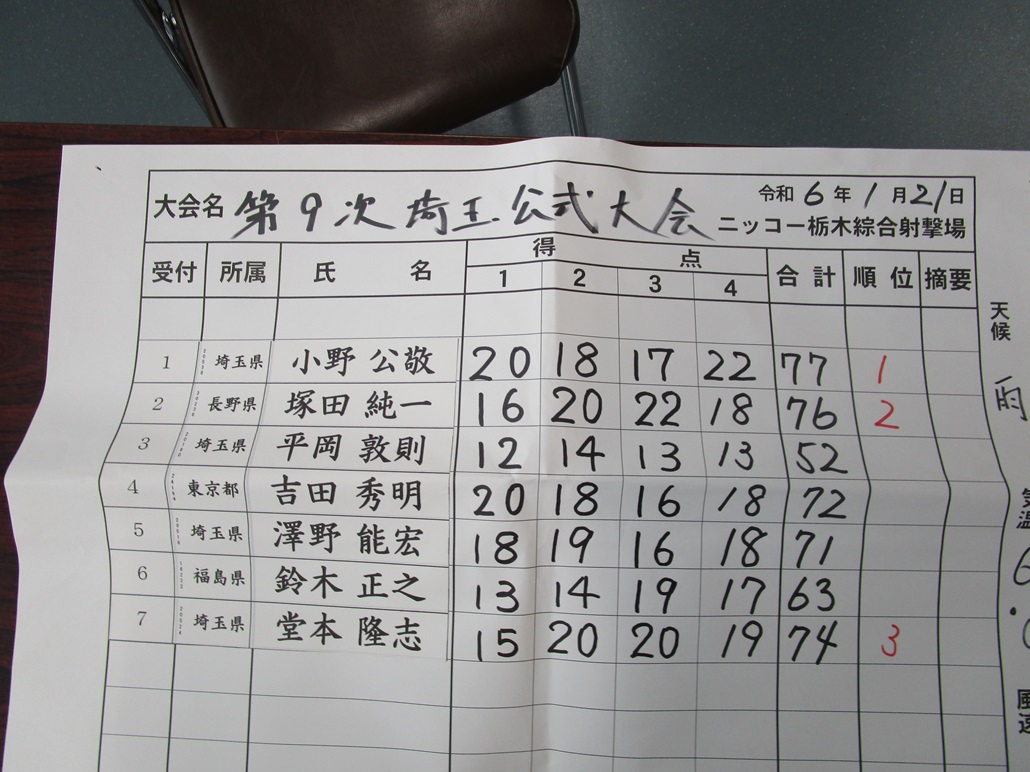 大会名 第9次 埼玉公式大会 令和 6 年 1 月 21 日
ニッコー栃木綜合射撃場
受付 所属 氏 名 得 点 合計 順位 摘要
1 2 3 4
1 埼玉県 小野 公敬 20 18 17 22 77 1
2 長野県 塚田 純一 16 20 22 18 76 2
3 埼玉県 平岡 敦則 12 14 13 13 52
4 東京都 吉田 秀明 20 18 16 18 72
5 埼玉県 澤野 能宏 18 19 16 18 71
6 福島県 鈴木 正之 13 14 19 17 63
7 埼玉県 堂本 隆志 15 20 20 19 74 3
天候
雨
気温
6.
風速